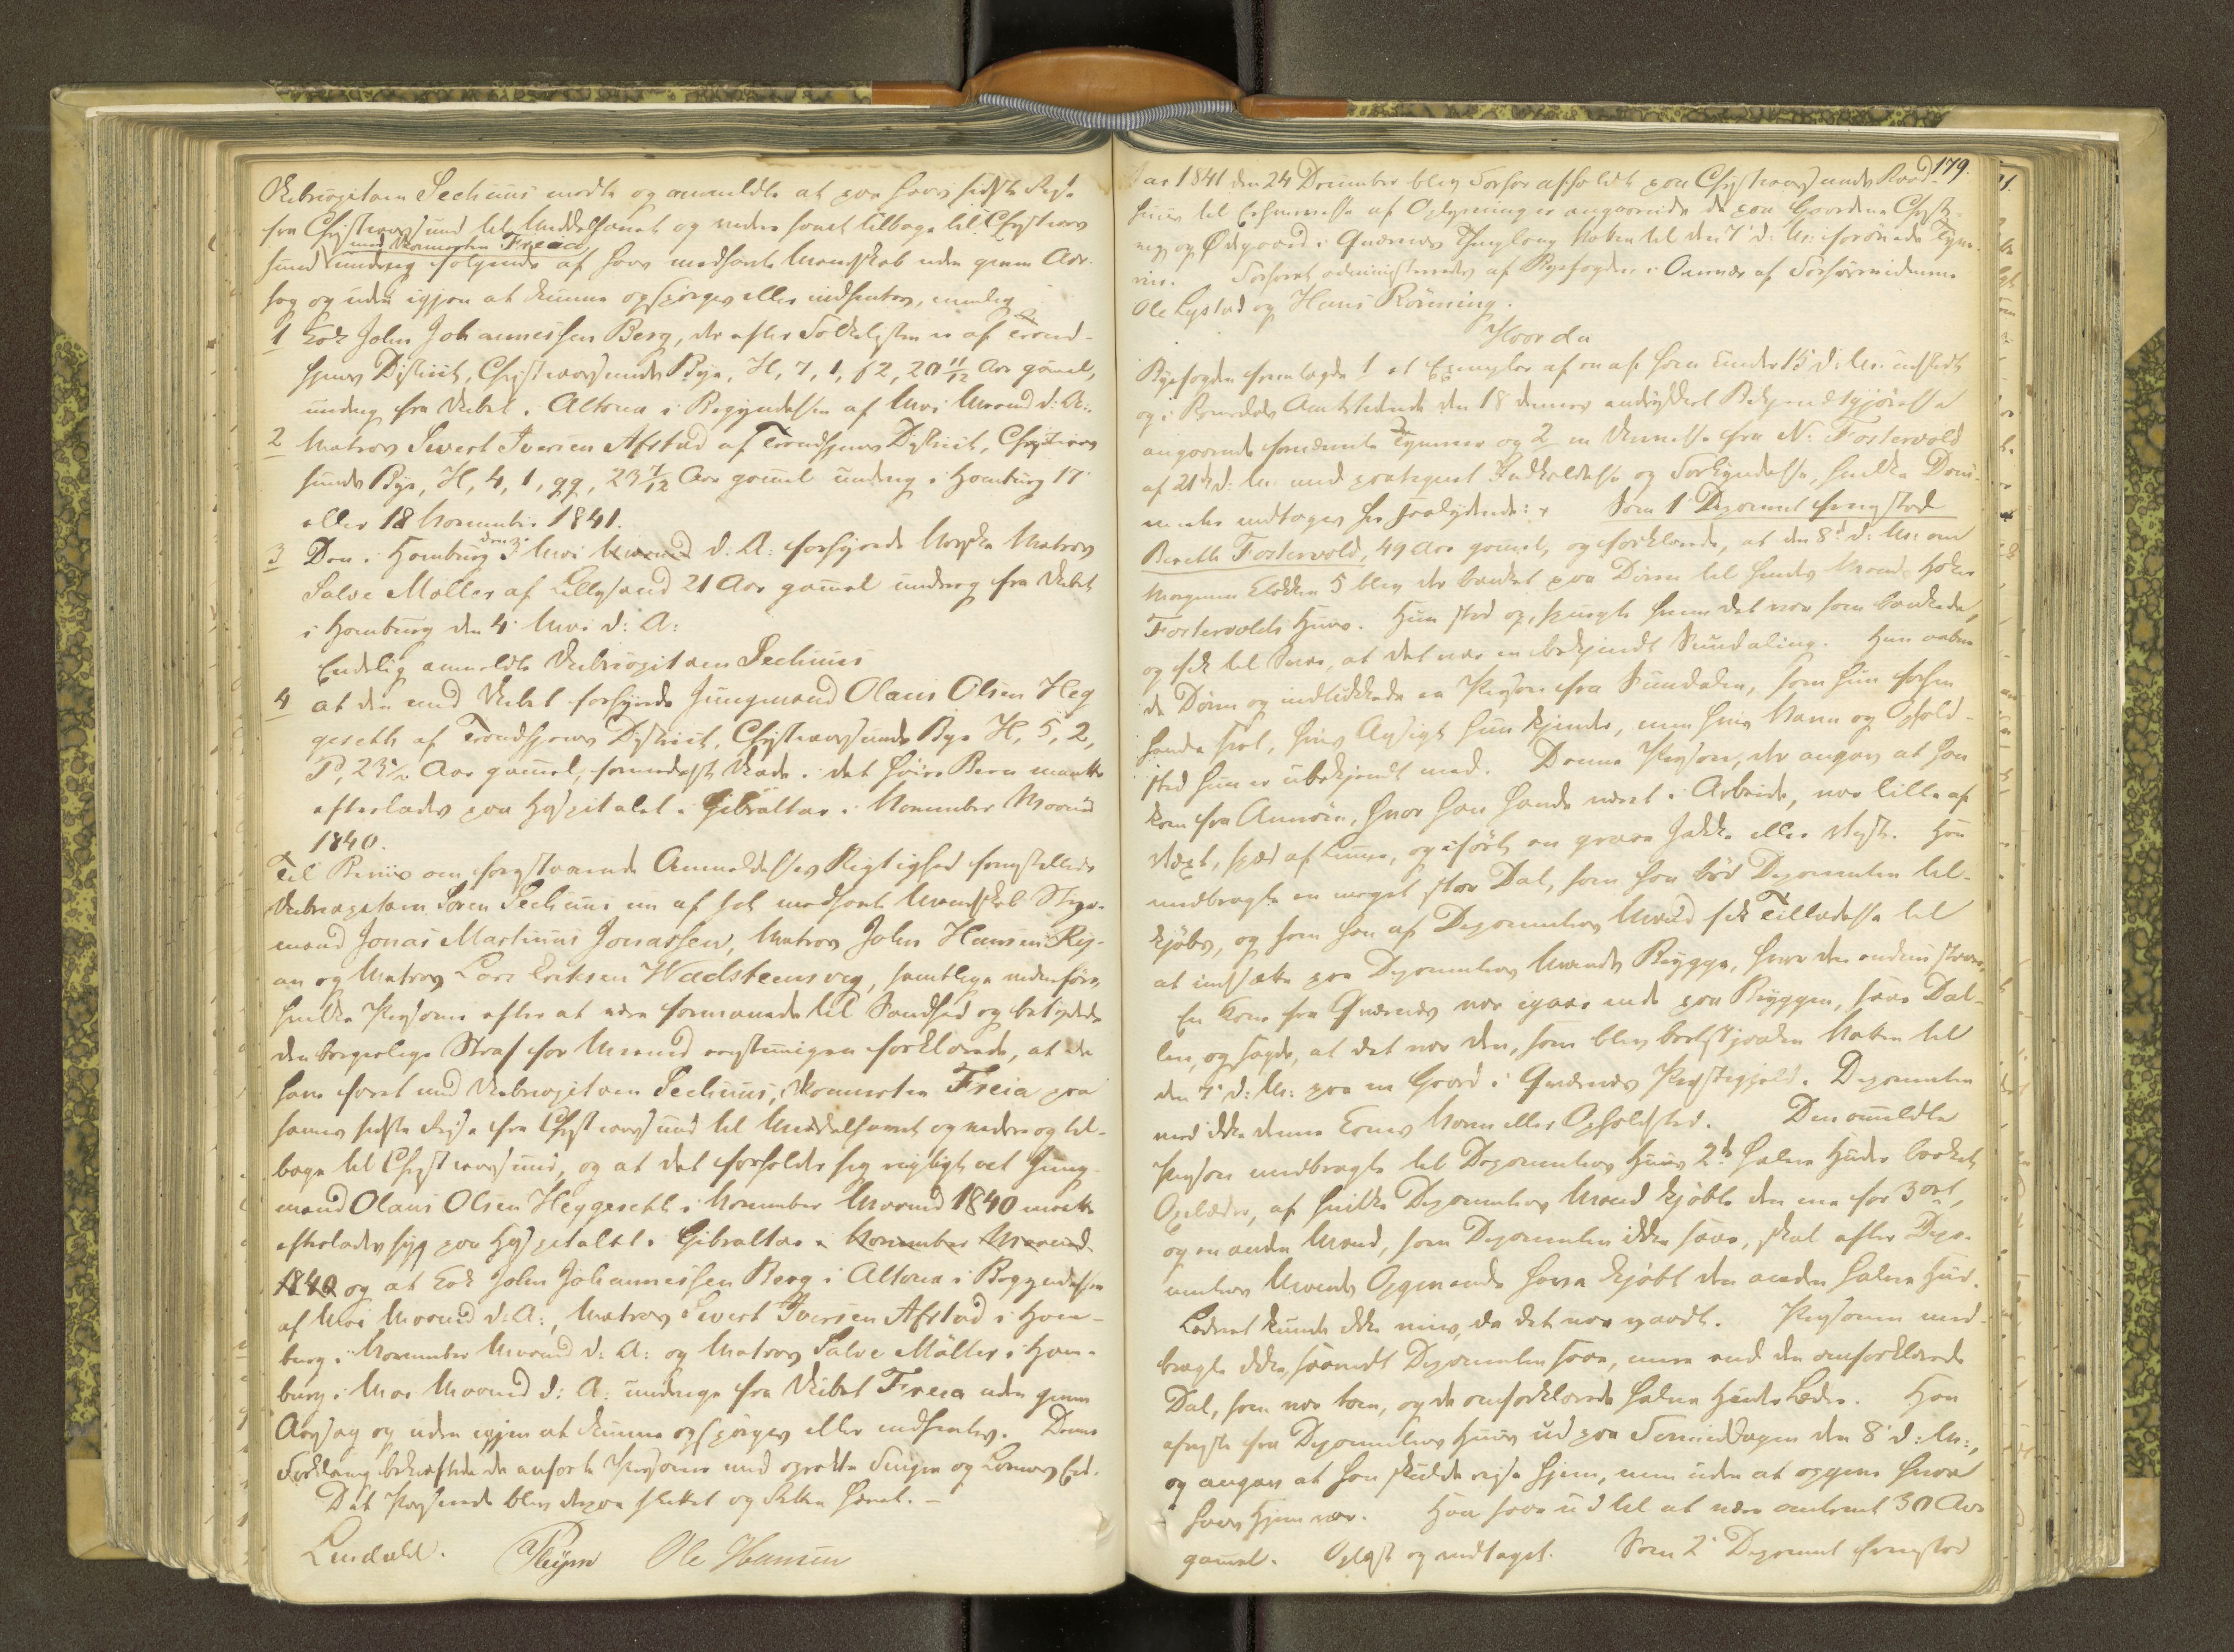 Skibscapitain Sechuus mødte og anmeldte at paa hans sidste Reise
fra Christiansund til Middelhavet og videre samt tilbage til Christian
med Skonnerten Freia
sund undveg følgende af hans medhavte Mandskab uden given Aar-
sag og uden igjen at kunne opspørges eller indhentes, nemlig
1 Kok John Johannessen Berg, der efter Rollelisten er af Trond-
hjems District, Christiansunds Bye, H, 7, 1, f 2, 20 11/12 Aar gammel,
undveg fra Skibet i Altona i Begyndelsen af Mai Maaned d: A:.
2 Matros Sivert Iversen Afstad af Trondhjems District, Christian
sunds Bye, H, 4, 1, qq, 23 7/12 Aar gammel undveg i Hamburg 17
eller 18 November 1841.
3 Den i Hamburg den 3 Mai Maaned d. A: forhyrede Norske Matros
Salve Møller af Lillesand 21 Aar gammel undveg fra Skibet
i Hamburg den 4 Mai d: A:
Endelig anmeldte Skibscapitaien Sechuus
4 at den med Skibet forhyrede Jungmand Olaus Olsen Heg
geseth af Trondhjems District, Christiansunds Bye H, 5, 2,
P, 23 Aar gammel, formedelst Skade i det høire Been maatte
efterlades paa Hospitalet i Gibraltar i November Maaned
1840.
Til Beviis om forestaaende Anmeldelses Rigtighed fremstillede
Skibscapitain Søren Sechuus nu af sit medhavte Mandskab Styr-
mand Jonas Martinus Jonassen, Matros John Hansen Ry-
an og Matros Lars Eriksen Wadsteensveg, samtlige indenførs,
hvilke Personer efter at være formanede til Sandhed og betydede
den borgerlige Straf for Meened eenstemmigen forklarede, at de
have faret med Skibscapitain Sechuus, Skonnerten Freia paa
hans sidste Reise fra Christiansund til Middelhavet og videre og til-
bage til Christiansund, og at det forholdt sig rigtigt at Jung-
mand Olaus Olsen Heggeseth i November Maaned 1840 maatte
efterlades syg paa Hospitalet i Gibraltar i November Maaned
1840 og at Kok John Johannessen Berg i Altona i Begyndelsen
af Mai Maaned d: A:, Matros Sivert Iversen Afstad i Ham-
burg i November Maaned d: A: og Matros Salve Møller i Ham-
burg i Mai Maaned d: A: undvege fra Skibet Freia uden given
Aarsag og uden igjen at kunne opspørges eller indhentes. Denne
Forklaring bekræftede de anførte Personer med oprakte Fingre og Lovens Eed.
Det Passerede blev derpaa sluttet og Retten hævet. –
Lindahl. Ole Hansen
179.
Aar 1841 den 24 December blev Forhør afholdt paa Christiansunds Raad-
huus til Erhvervelse af Oplysninger angaaende de paa Gaardene
og Ødegaard i Qværnæs Thinglaug Natten til den 7 d: M: forøvede Tyve-
rier. Forhøret administreredes af Byefogden i Overvær af Forhørsvidnerne
Ole Lystad og Hans Rönning.
Hvorda
Byefogden fremlagde 1 et Exemplar af en af ham under 15 d: M: udstedt
og i Romsdals Amtstidende den 18 dennes indrykket Bekjendtgjørelse
angaaende fornævnte Tyverier og 2 en Skrivelse fra N: Fostervold
af 21 d: M: med paategnet Indkaldelse og Forkyndelse, hvilke Docu-
menter indtages her saalydende: Som 1 Deponent fremstod
Bereth Fostervold, 49 Aar gammel, og forklarede, at den 8 d: M: om
Morgenen Klokken 5 blev der banket paa Døren til hendes Mands
Fostervolds Huus. Hun stod op, spurgte hvem det var som bankede,
og fik til Svar, at det var en bekjendt Sundaling. Hun aabne
de Døren og indlukkede en Person fra Sundalen, som hun forhen
havde seet, hvis Ansigt hun kjender, men hvis Navn og Ophold-
sted hun er ubekjendt med. Denne Person, der angav at han
kom fra Averøen, hvor han havde været i Arbeide, var lille af
Væxt, spæd af Lemmer, og iført en graae Jakke eller Vest. Han
medbragte en meget stor Dal, som han bød Deponenten til-
kjøbs, og som han af Deponentens Mand fik Tilladelse til
at indsætte paa Deponentens Mands Brygge, hvor den endnu staaer.
En Kone fra Qværnæs var igaar inde paa Bryggen, saae Dal-
len, og sagde, at det var den, som blev bortstjaalen Natten til
den 7 d: M: paa en Gaard i Qværnæs Præstegjeld. Deponenten
veed ikke denne Kones Navn eller Opholdsted. Den ommeldte
Person medbragte til Deponentens Huus 2 halve Huder barket
Overlæder, af hvilke Deponentens Mand kjøbte den ene for 3 ort,
og en anden Mand, som Deponenten ikke saae, skal efter Depo-
nentens Mands Opgivende have kjøbt den anden halve Hud.
Læderet kunde ikke veies, da det var vaadt. Personen med-
bragte ikke, saavidt Deponenten saae, mere end den omforklarede
Dal, som var tom, og de omforklarede halve Huder Læder. Han
afreiste fra Deponentens Huus ud paa Formiddagen den 8 d: M:,
og angav at han skulde reise hjem, men uden at opgive hvor
hans Hjem var. Han saae ud til at være omtrent 30 Aar
gammel. Oplæst og vedtaget. Som 2 Deponent fremstod